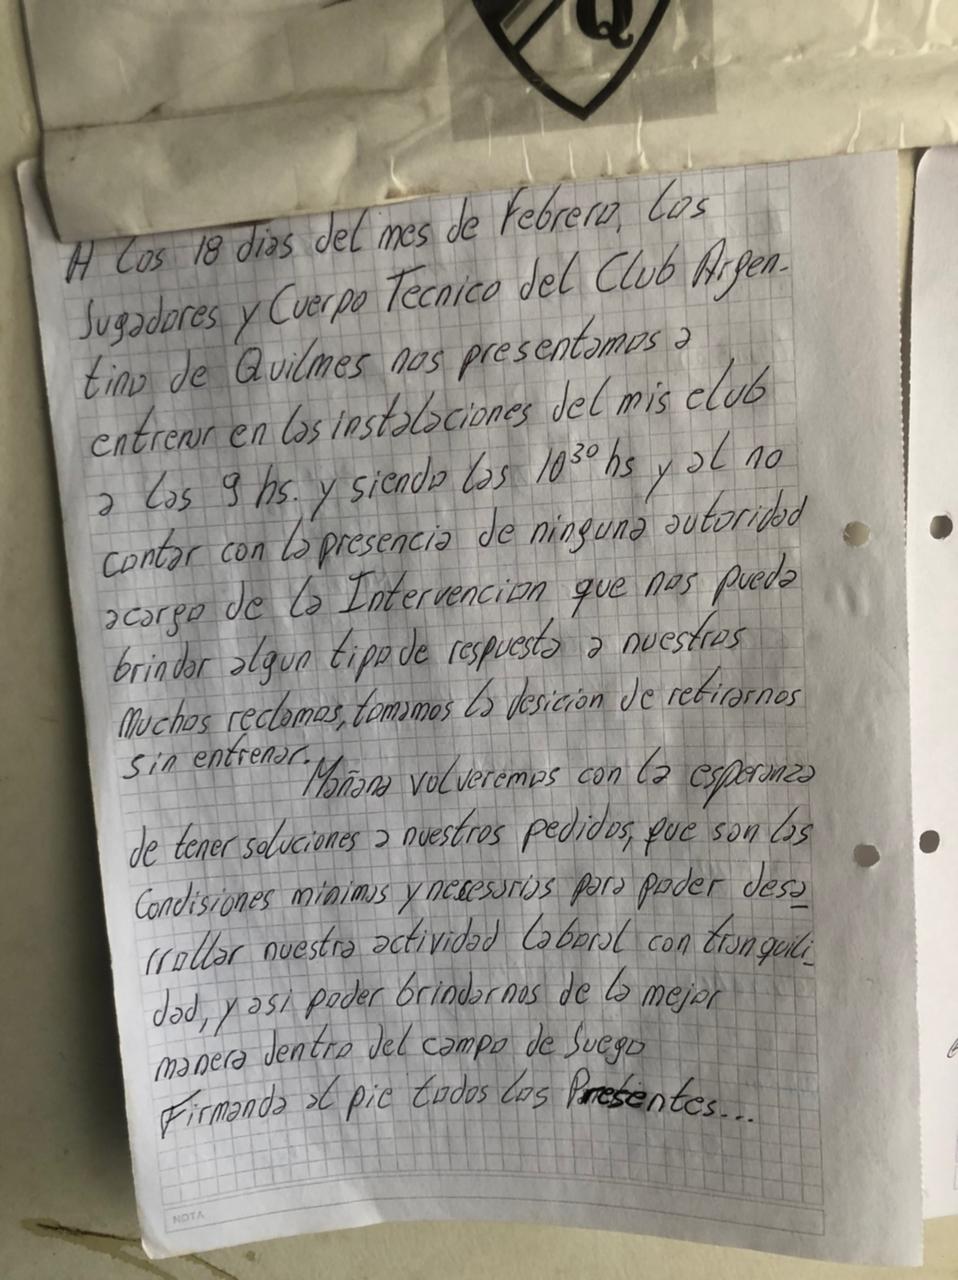 Q
A los 18 dias del mes de Febrero, los
Jugadores y Cuerpo Tecnico del Club Argen-
tino de Quilmes nos presentamos a
entrenar en las instalaciones del mis club
a las 9 hs. y siendo las 10³⁰ hs y al no
contar con la presencia de ninguna autoridad
acargo de la Intervencion que nos pueda
brindar algun tipo de respuesta a nuestros
Muchos reclamos, tomamos la desicion de retirarnos
sin entrenar.
Mañana volveremos con la esperanza
de tener soluciones a nuestros pedidos, que son las
Condisiones minimas y necesarias para poder desa
rrollar nuestra actividad laboral con tranquili_
dad, y asi poder brindarnos de la mejor
manera dentro del campo de Juego
Firmando al pie todos los Presentes...
NOTA